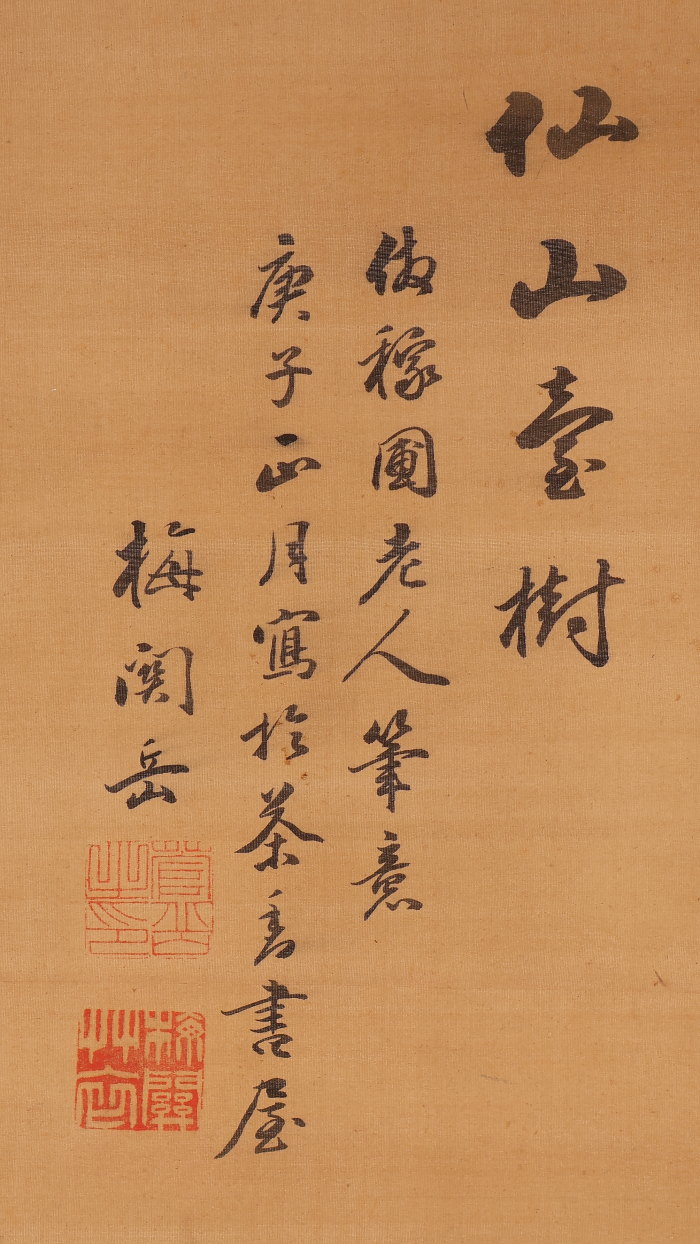 仙山臺樹
倣稼圃老人筆意
庚子正月寫於茶香書屋
梅関岳